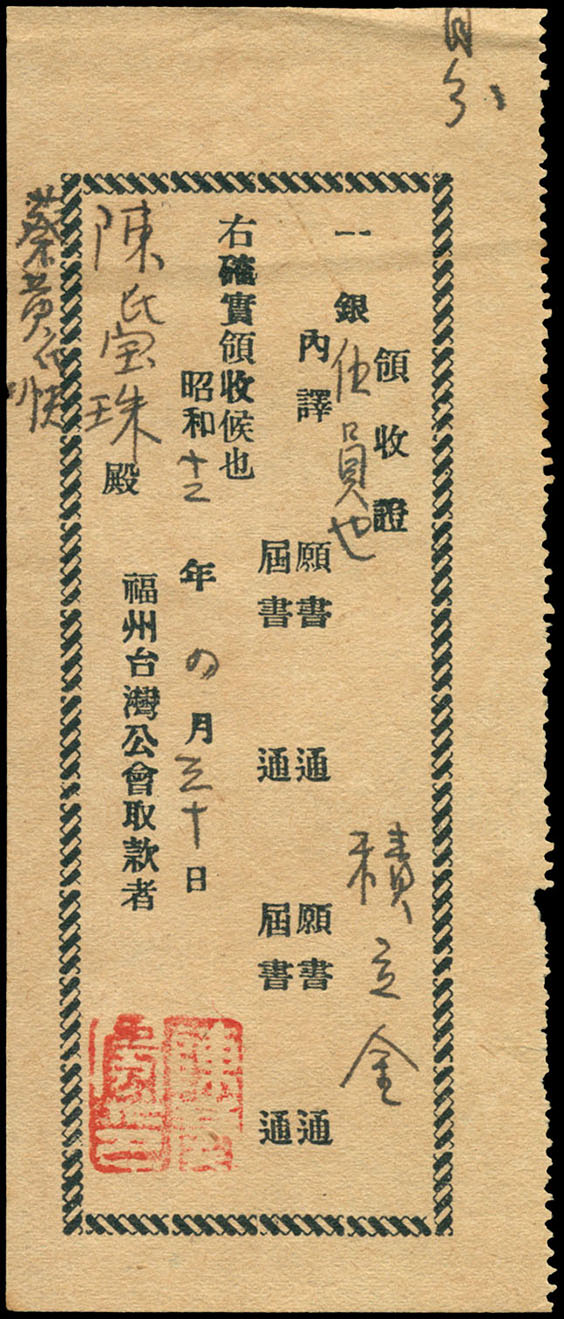 領收證
一銀伍員也
積立金
內譯
願書 通 願書 通
屆書 通 屆書 通
右確實領收候也
昭和十二年四月三十日
福州台灣公會取款者
陳氏宝珠殿
蔡黄氏